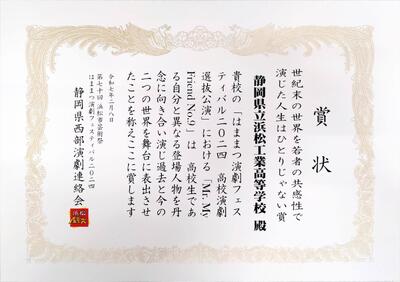 賞状
世紀末の世界を若者の共感性で
演じた人生はひとりじゃない賞
静岡県立浜松工業高等学校 殿
貴校の「はままつ演劇フェス
ティバル二〇二四 高校演劇
選抜公演」における「Mr. My
Friend No.9」は 高校生であ
る自分と異なる登場人物を丹
念に向き合い演じ過去と今の
二つの世界を舞台に表出させ
たことを称えここに賞します
令和七年二月八日
第七十回 浜松市芸術祭
はままつ演劇フェスティバル二〇二四
静岡県西部演劇連絡会